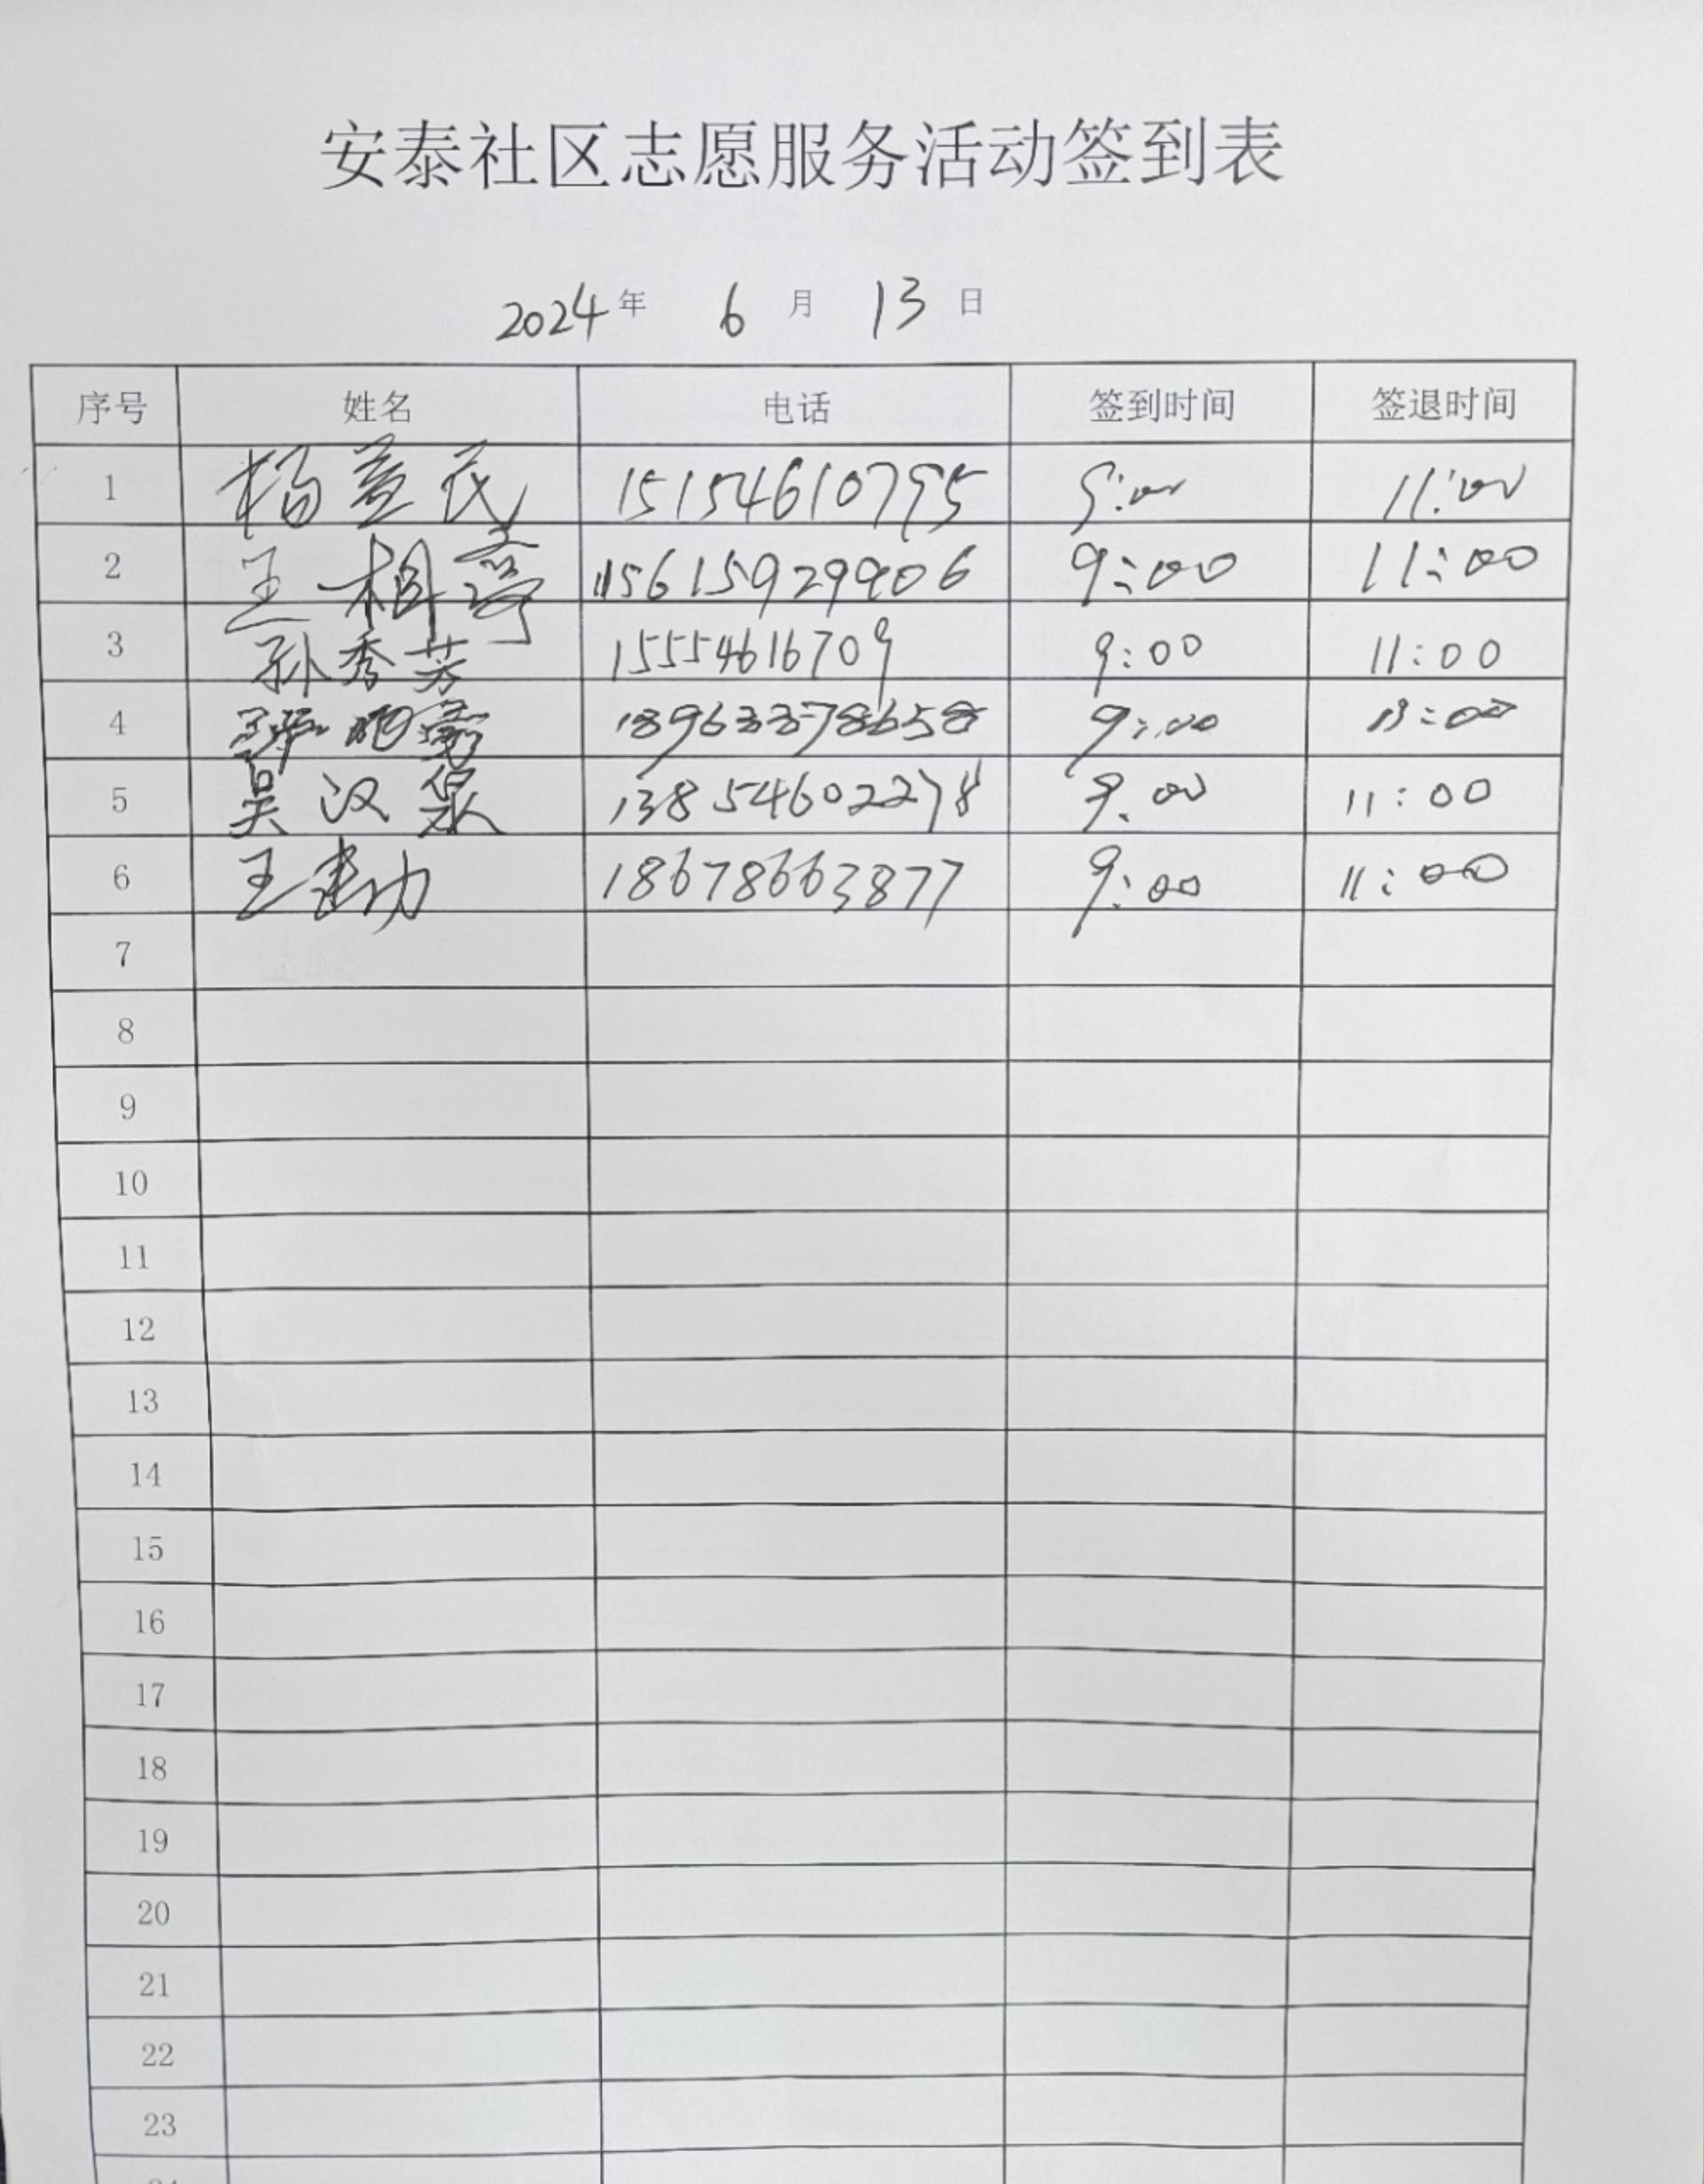 安泰社区志愿服务活动签到表
2024年 6月 13日
序号 姓名 电话 签到时间 签退时间
1 杨 15154610795 9:00 11:00
2 王相 15615929906 9:00 11:00
3 孙秀芳 15554616709 9:00 11:00
4 9:00
5 吴汉泉 13854602278 9:00 11:00
6 王建功 18678663877 9:00 11:00
7
8
9
10
11
12
13
14
15
16
17
18
19
20
21
22
23